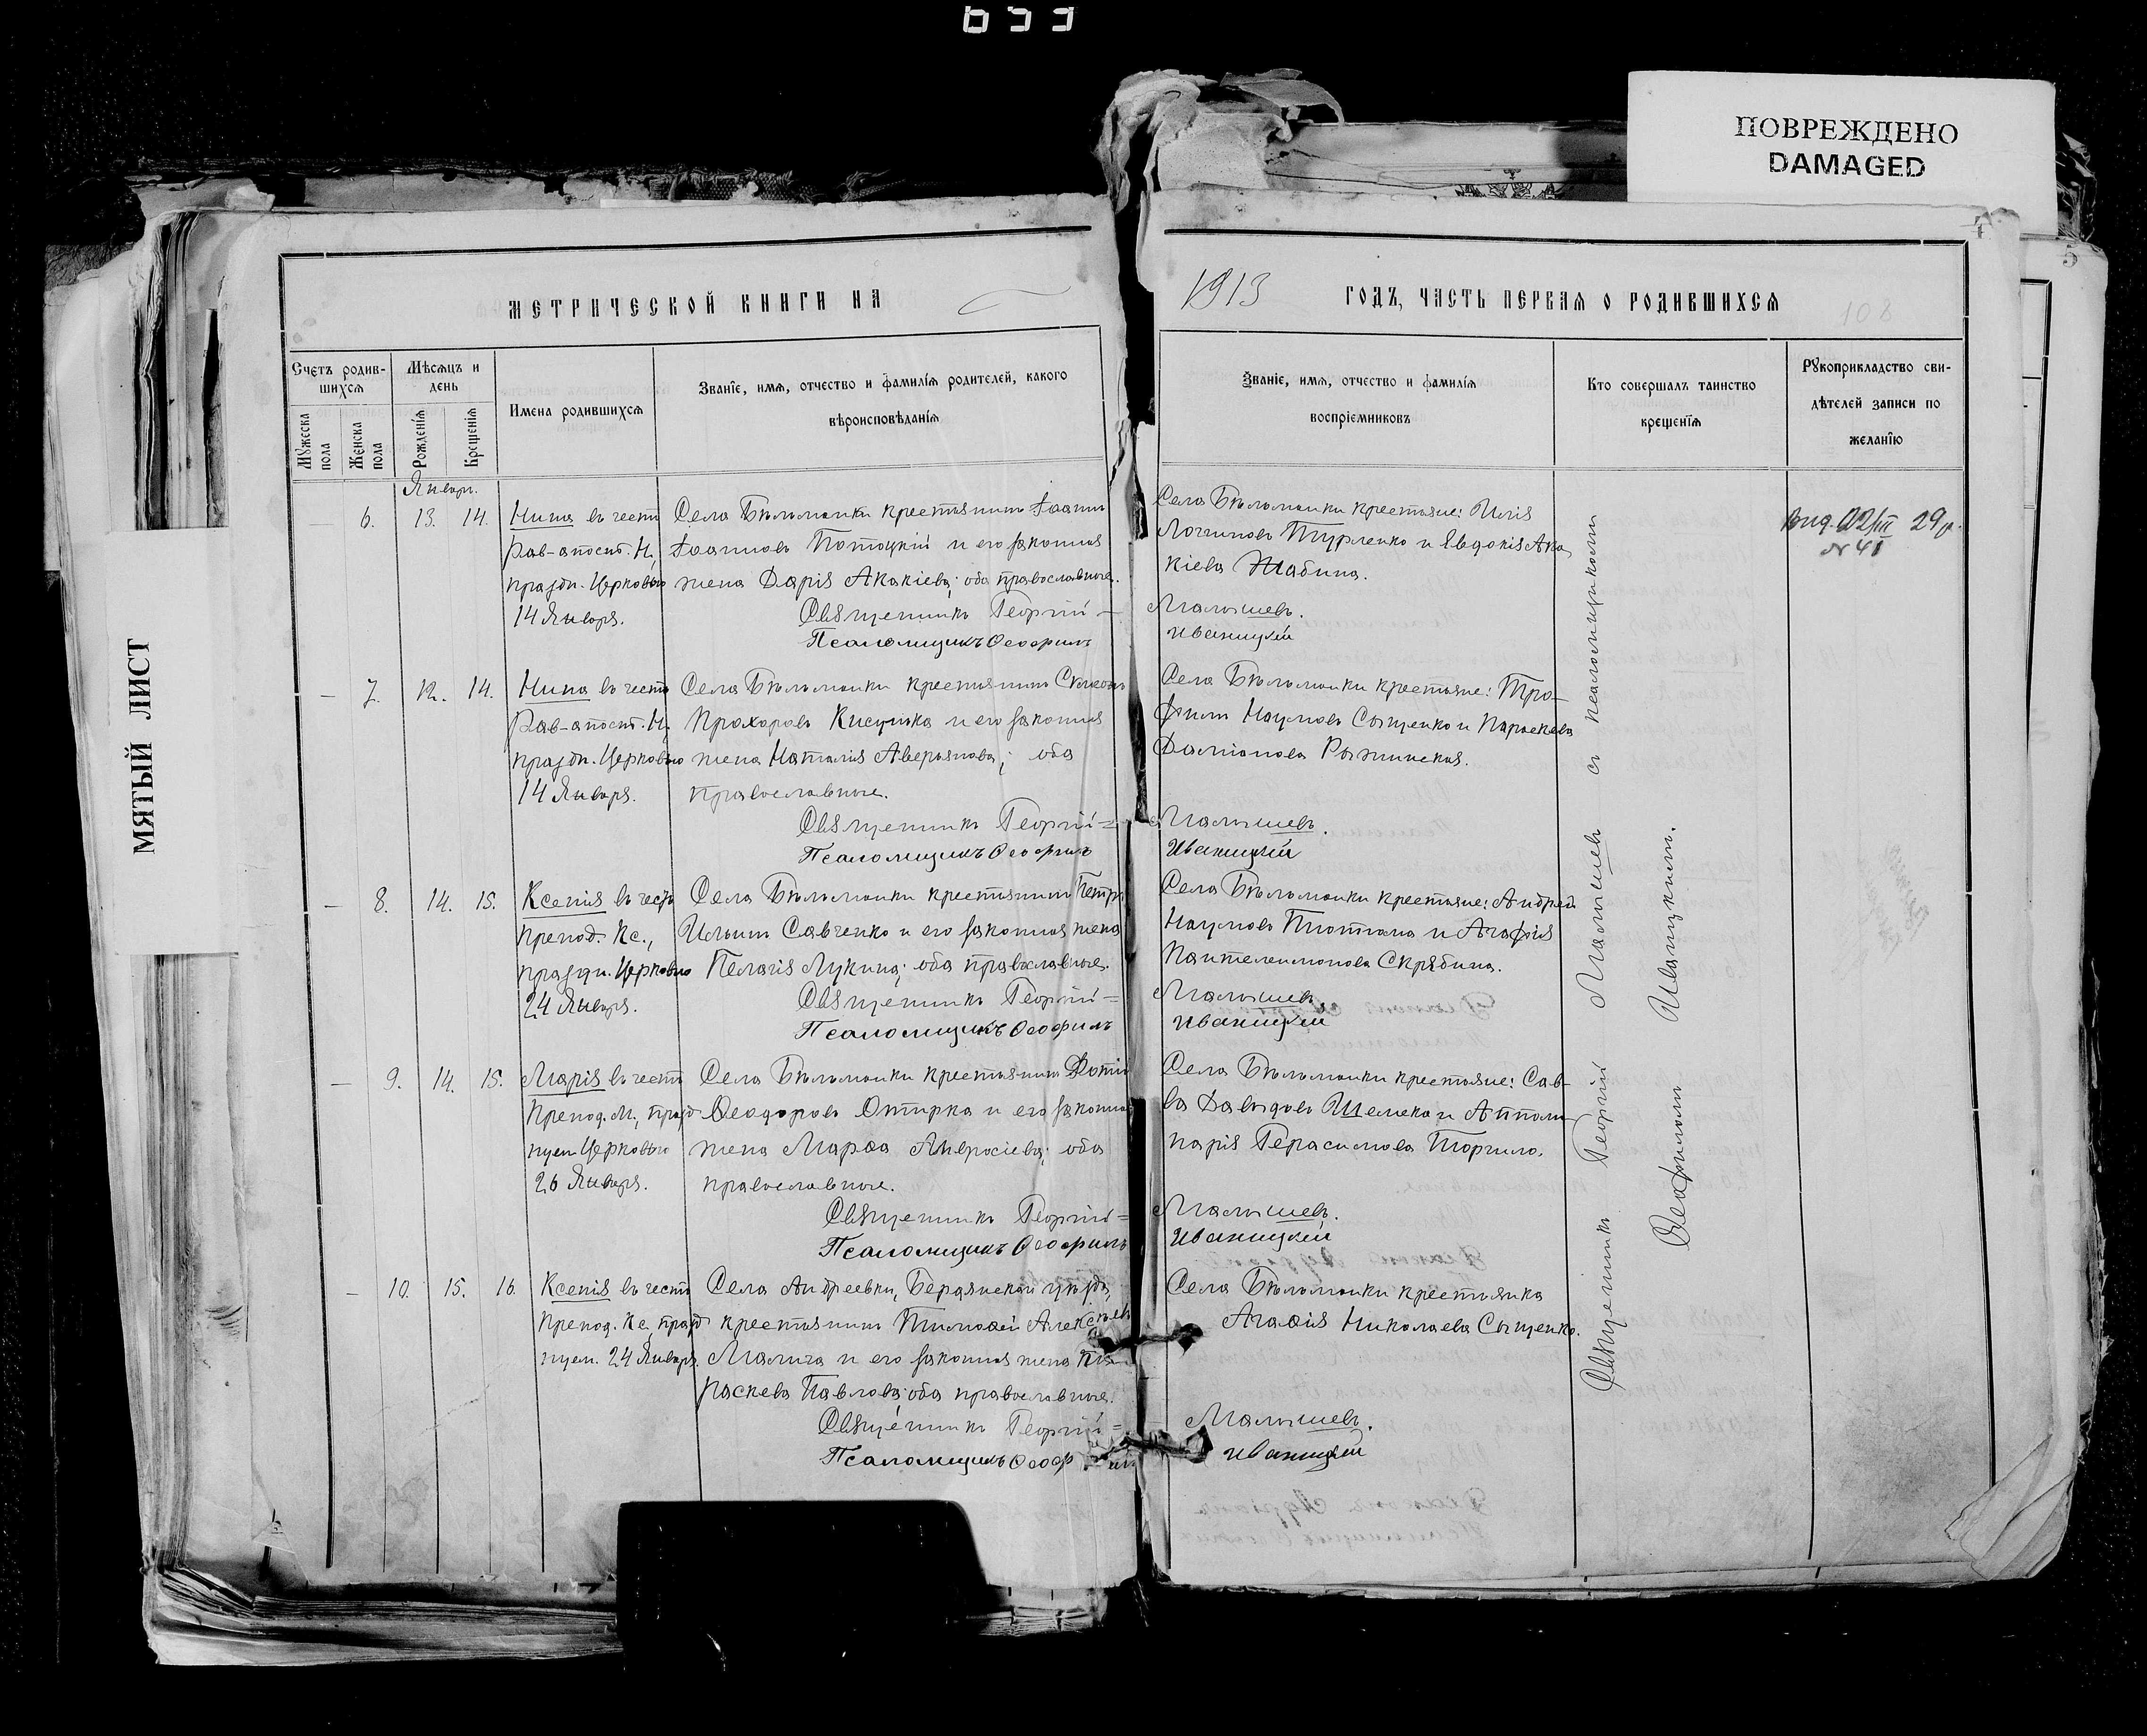 ПОВРЕЖДЕНО
DAMAGED
МЯТЫЙ ЛИСТ
МЕТРИЧЕСКОЙ КНИГИ НА
1913 ГОДЪ, ЧАСТЬ ПЕРВАЯ О РОДИВШИХСЯ
Счетъ родив-
шихся
Мѣсяцъ и
день
Мужеска
пола
Женска
пола
Рожденія
Крещенія
Имена родившихся
Званіе, имя, отчество и фамилія родителей, какого
вѣроисповѣданія
Званіе, имя, отчество и фамилія
воспріемниковъ
Кто совершалъ таинство
крещенія
Рукоприкладство сви-
дѣтелей записи по
желанію
Январь.
— 6. 13. 14.
Нина въ честь
Рав-апост. Н.,
праздн. Церковью
14 Января.
Села Бѣльманки крестьянинъ Іоаннъ
Іоанновъ Потоцкій и его законная
жена Дарія Акакіева; оба православные.
Священникъ Георгій
Псаломщикъ Ѳеофилъ
Села Бѣльманки крестьяне: Илія
Логгиновъ Турленко и Евдокія Ака-
кіева Шабина.
Малышевъ.
Иваницкій
29 р.
— 7. 12. 14.
Нина въ честь
Рав-апост. Н.
праздн. Церковью
14 Января.
Села Бѣльманки крестьянинъ Симеонъ
Прохоровъ Кисулька и его законная
жена Наталія Аверьянова; оба
православные.
Священникъ Георгій
Псаломщикъ Ѳеофилъ
Села Бѣльманки крестьяне: Тро-
фимъ Наумовъ Сыщенко и Параскева
Даміанова Рыжинская.
Малышевъ.
Иваницкій
— 8. 14. 15.
Ксенія въ честь
препод. Кс.,
праздн. Церковью
24 Января.
Села Бѣльманки крестьянинъ Петръ
Ильинъ Савченко и его законная жена
Пелагія Лукина; оба православные.
Священникъ Георгій
Псаломщикъ Ѳеофилъ
Села Бѣльманки крестьяне: Андрей
Наумовъ Плотана и Агафія
Пантелеимонова Скрябина.
Малышевъ
Иваницкій
— 9. 14. 15.
Марія въ честь
препод. М., празд-
нуем. Церковью
26 Января.
Села Бѣльманки крестьянинъ Фотій
Ѳеодоровъ Отирка и его законная
жена Марѳа Амвросіева; оба
православные.
Священникъ Георгій
Псаломщикъ Ѳеофилъ
Села Бѣльманки крестьяне: Сав-
ва Давыдовъ Шемека и Аппли-
нарія Герасимова Торгило.
Малышевъ.
Иваницкій
— 10. 15. 16.
Ксенія въ честь
препод. Кс., празд-
нуем. 24 Января.
Села Андреевки, Бердянскаго уѣзда,
крестьянинъ Тимоѳей Алексѣевъ
Малича и его законная жена Па-
раскева Павлова; оба православные.
Священникъ Георгій
Псаломщикъ Ѳеоф
Села Бѣльманки крестьянка
Агаѳія Николаева Сыщенко.
Малышевъ.
Иваницкій
Священникъ Георгій Малышевъ съ псаломщикомъ
Ѳеофиломъ Иваницкимъ.